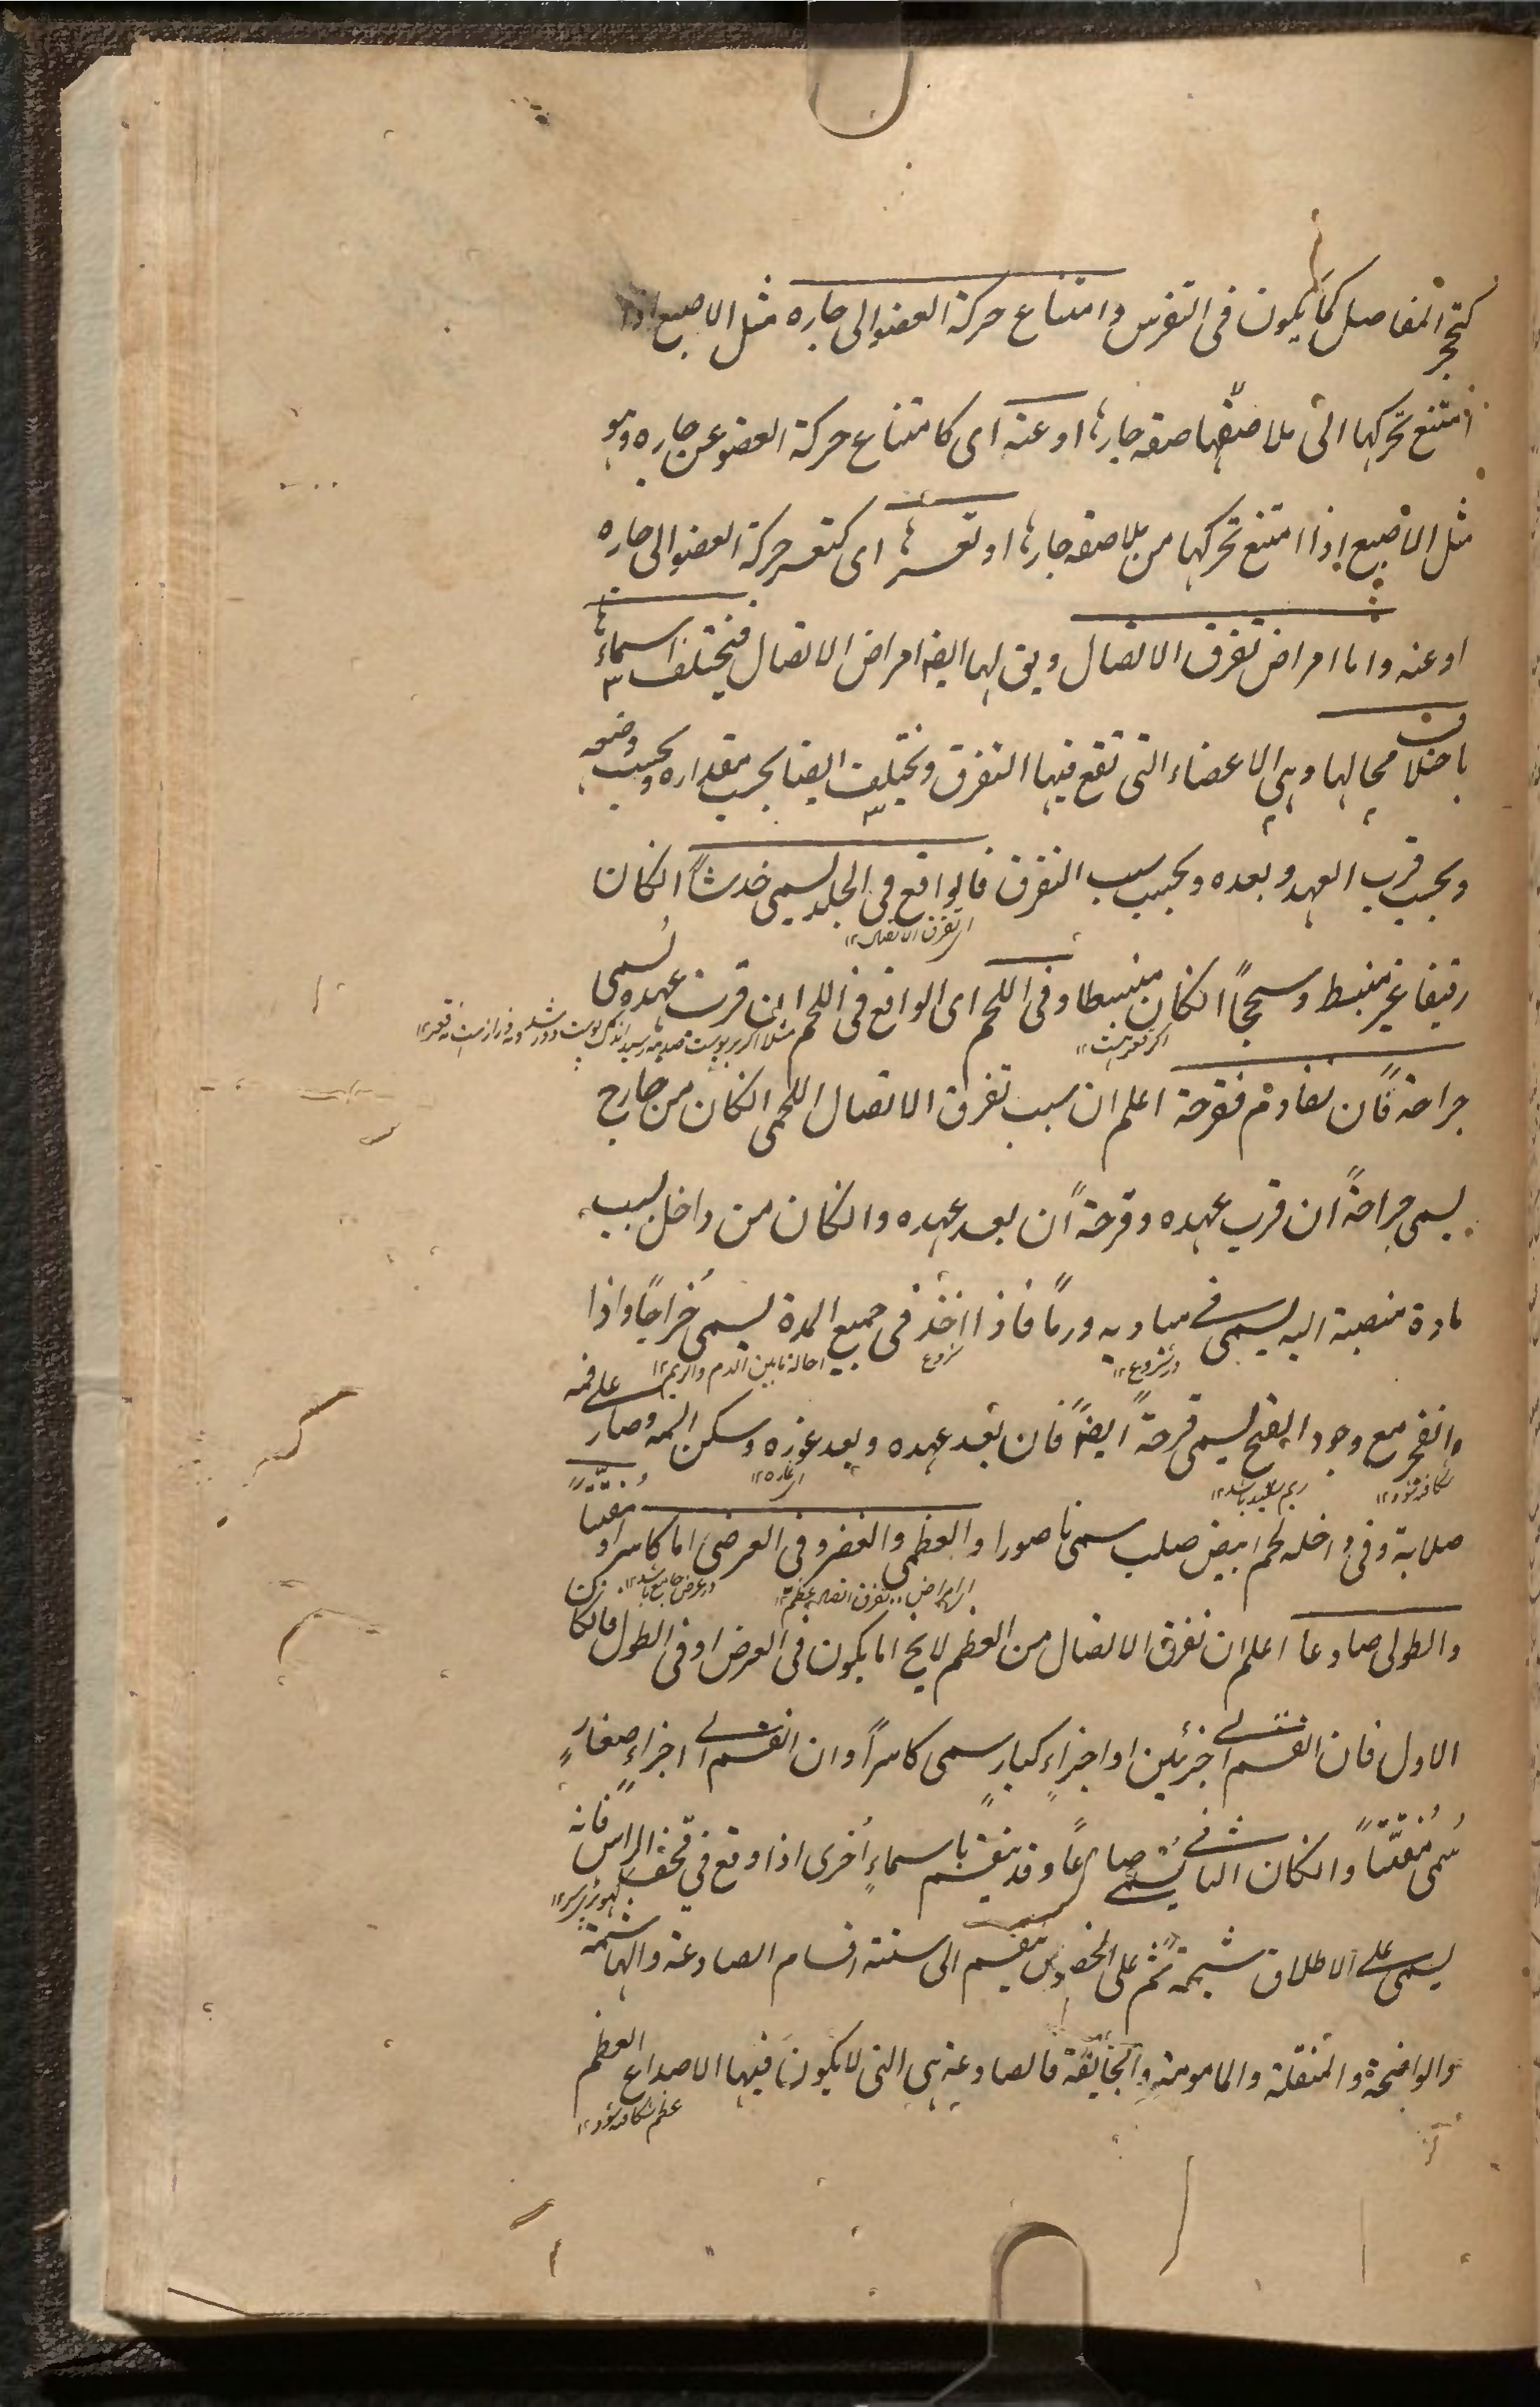 كتحجر المفاصل كما يكون فى النقرس وامتناع حركة العضو الى جاره مثل الاصبع اذا
امتنع تحركها الى ملاصقتها صقه جارها او عنه اى كامتناع حركة العضو عن جاره وهو
مثل الاصبع اذا امتنع تحركها من ملاصقه جارها او تعسرها اى كتعسر حركة العضو الى جاره
او عنه واما امراض تفرق الاتصال ويق لها ايضا امراض الاتصال فيختلف اسماءها
باختلاف محالها وهى الاعضاء التى تقع فيها التفرق وتختلف ايضا بحسب مقداره وبحسب وضعه
وبحسب قرب العهد وبعده وبحسب سبب التفرق فالواقع فى الجلد يسمى خدشاً انكان
اى تفرق الاتصال ١٢
رقيقا غير منبسط وسحجاً انكان منبسطا وفى اللحم اى الواقع فى اللحم ان قرب عهده يسمى
جراحة فان تقادم فقرحة اعلم ان سبب تفرق الاتصال اللحمى انكان من خارج
يسمى جراحةً ان قرب عهده وقرحةً ان بعد عهده وانكان من داخل بسبب
مادة منصبة اليه يسمى فى مباديه ورماً فاذا اخذ فى جميع المدة يسمى خُراجاً واذا
در شروع ١٢ شروع احاله مابين الدم والريم ١٢
وانفجر مع وجود القيح يسمى قرحةً ايضاً فان بعد عهده وبعد غوره وسكن المه وصار على فمه
شكافته شود ١٢ ريم سفيد باشد ١٢
صلابة وفى داخله لحم ابيض صلب سمى ناصورا والعظمى والغضروفى العرضى اما كاسرا او مفتتاً
والطولى صادعا اعلم ان تفرق الاتصال من العظم لايخ اما يكون فى العرض او فى الطول فالكان
الاول فان انقسم الى جزئين او اجزاءٍ كبارٍ سمى كاسراً وان انقسم الى اجزاءٍ صغارٍ
سُمى مُفتّتاً وانكان الثانى يسمى صادعاً وقد ينقسم باسماءٍ اُخرى اذا وقع فى قحف الراس فانه
يسمى على الاطلاق شجة ثم على الخصوص ينقسم الى ستة اقسام الصادعة والهاشمة
والواضحة والمنقلة والمامومة والجائفة فالصادعة هى التى لايكون فيها الا صداع العظم
عظم شكافته شود ١٢